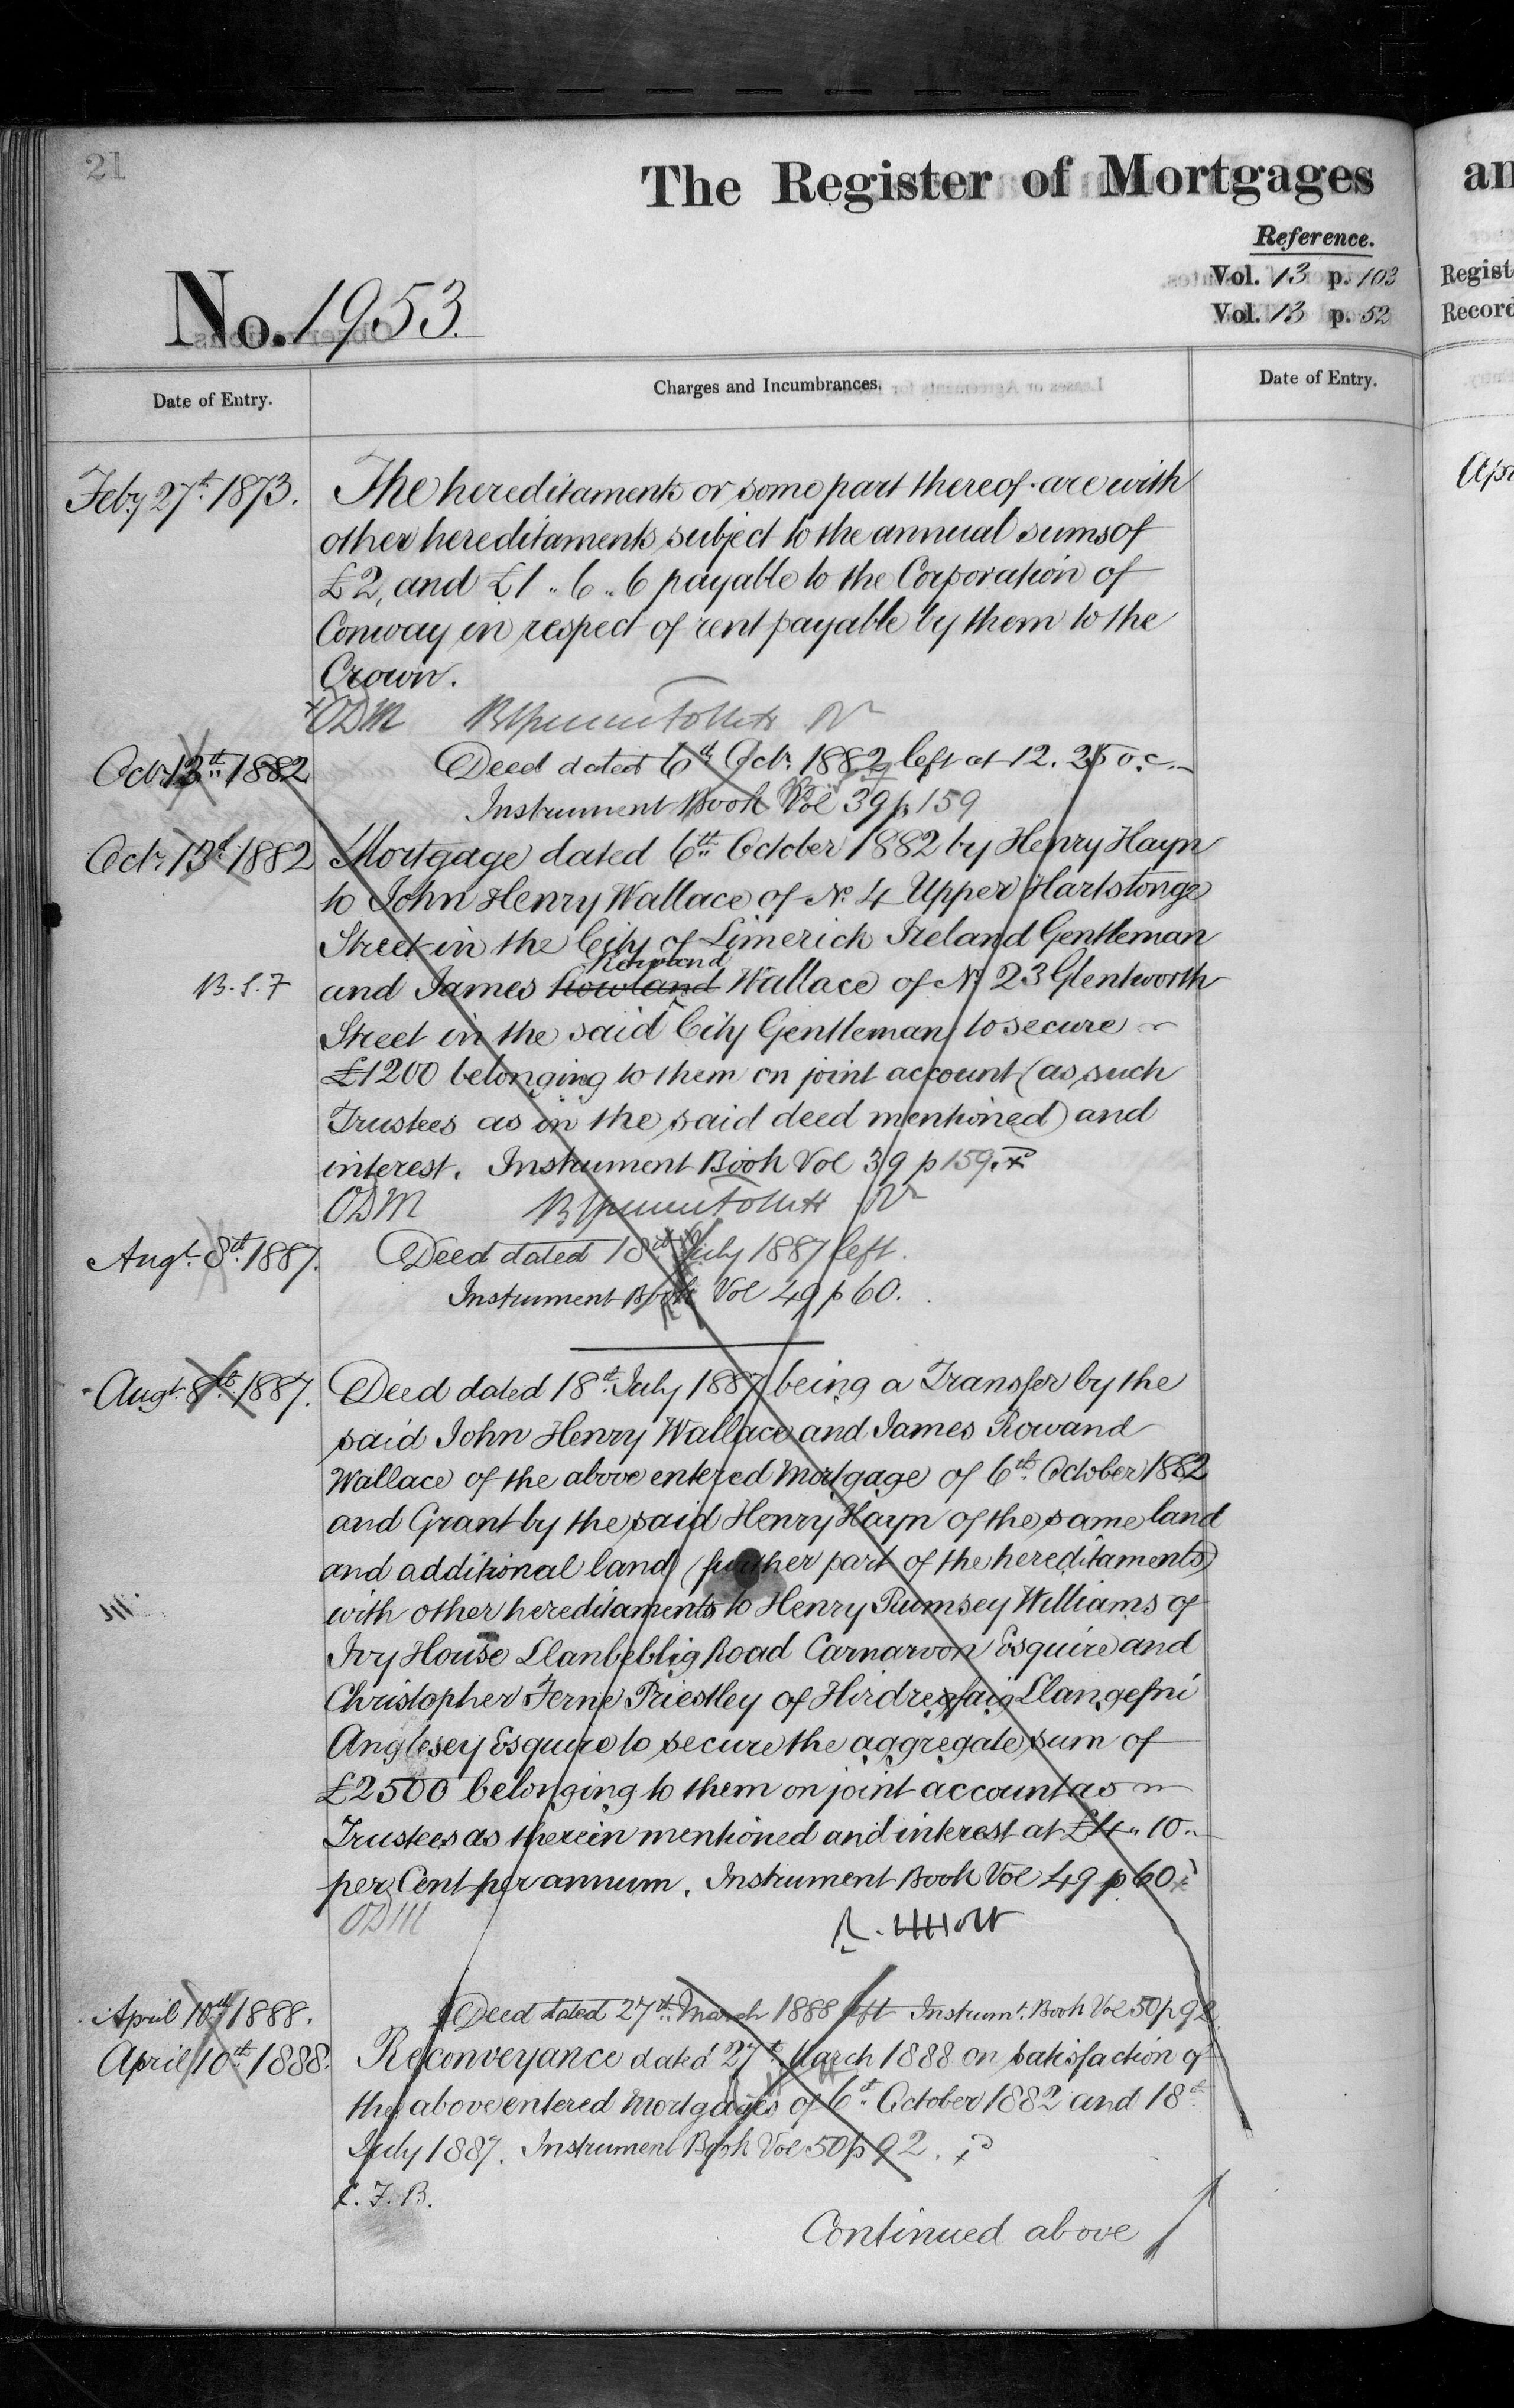 21
The Register of Mortgages
an
Reference.
Vol. 13 p. 103
Regist
No. 1953.
Vol. 13 p. 52
Record
Date of Entry.
Charges and Incumbrances.
Date of Entry.
Feby 27th 1873.
The hereditaments or some part thereof are with
other hereditaments subject to the annual sums of
£2, and £1 „ 6 „ 6 payable to the Corporation of
Conway in respect of rent payable by them to the
Crown.
ODM
Octr. 13th 1882
Deed dated 6th Octr. 1882 left at 12.25 o.c.
Instrument Book Vol 39 p 159
Octr. 13th 1882
Mortgage dated 6th October 1882 by Henry Hayn
to John Henry Wallace of No. 4 Upper Hartstonge
Street in the City of Limerick Ireland Gentleman
Rowand
B.S.F
and James Rowland Wallace of No 23 Glentworth
Street in the said City Gentleman to secure
£1200 belonging to them on joint account (as such
Trustees as in the said deed mentioned) and
interest. Instrument Book Vol 39 p 159.
ODM
Augt. 8th 1887.
Deed dated 18th July 1887 left.
Instrument Book Vol 49 p 60.
Augt. 8th 1887.
Deed dated 18th July 1887 being a Transfer by the
said John Henry Wallace and James Rowand
Wallace of the above entered Mortgage of 6th October 1882
and Grant by the said Henry Hayn of the same land
and additional land (further part of the hereditaments)
with other hereditaments to Henry Rumsey Williams of
Ivy House Llanbeblig Road Carnarvon Esquire and
Christopher Ferne Priestley of Hirdrefaig Llangefni
Anglesey Esquire to secure the aggregate sum of
£2500 belonging to them on joint account as
Trustees as therein mentioned and interest at £4 „ 10 „
per Cent per annum. Instrument Book Vol 49 p 60
ODM
April 10th 1888.
Deed dated 27th March 1888 left Instrumt. Book Vol 50 p 92
April 10th 1888.
Reconveyance dated 27th March 1888 on satisfaction of
the above entered Mortgages of 6th October 1882 and 18th
July 1887. Instrument Book Vol 50 p 92.
C. F. B.
Continued above